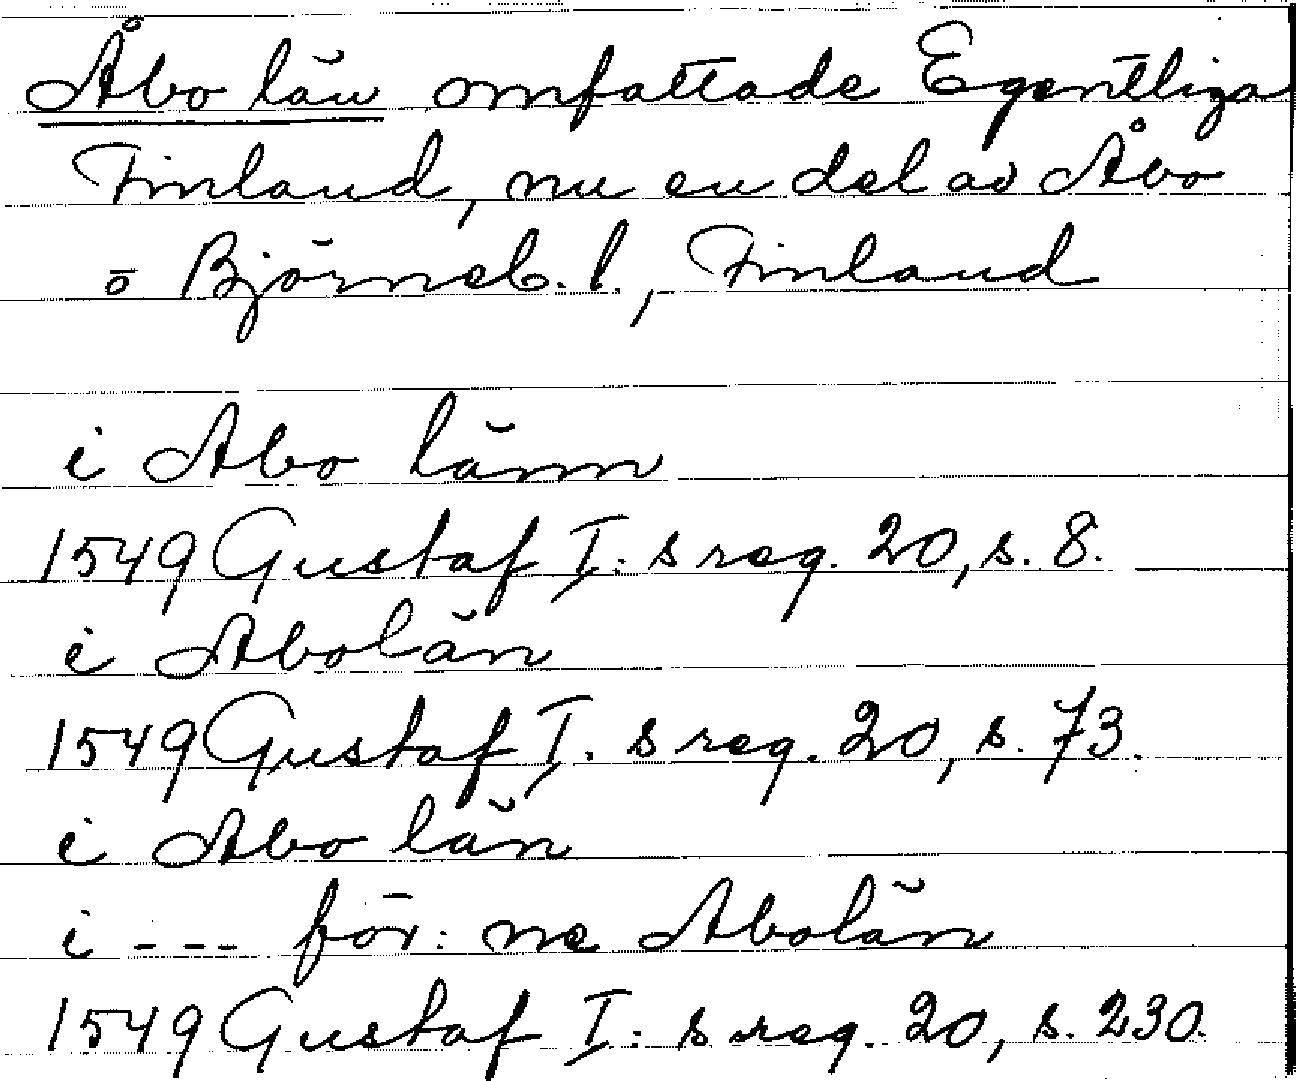 Åbo län omfattade Egentliga
Finland, nu en del av Åbo
o Björneb. l., Finland
i Abo länn
1549 Gustaf I: s reg. 20, s. 8.
i Abolän
1549 Gustaf I. s reg. 20, s. 73.
i Abo län
i --- för: ne Abolän
1549 Gustaf I: s reg. 20, s. 230.